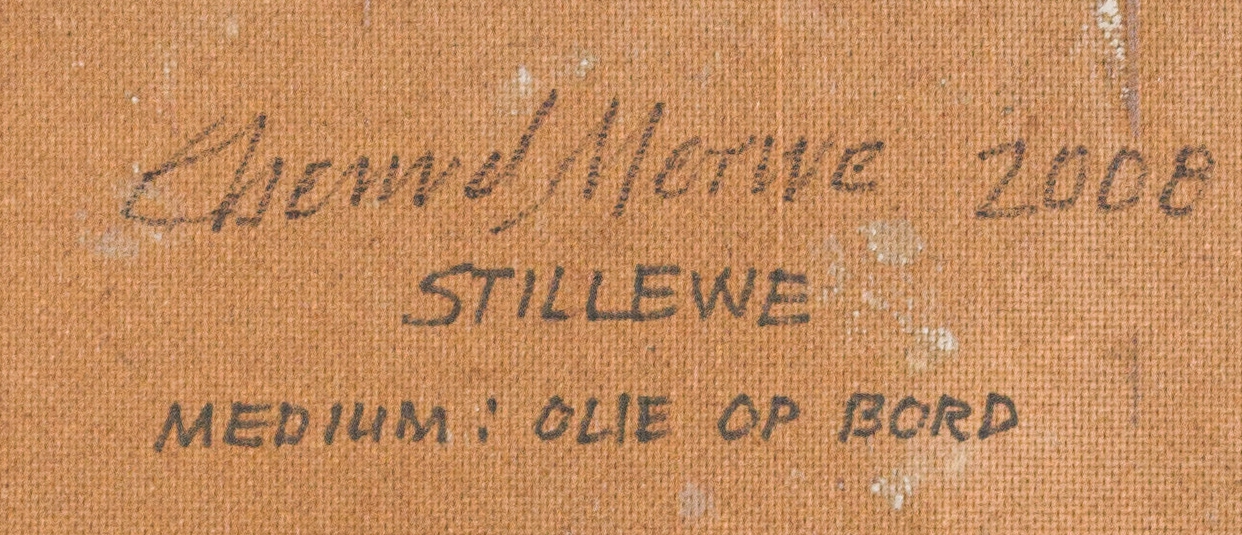 Merwe 2008
STILLEWE
MEDIUM: OLIE OP BORD